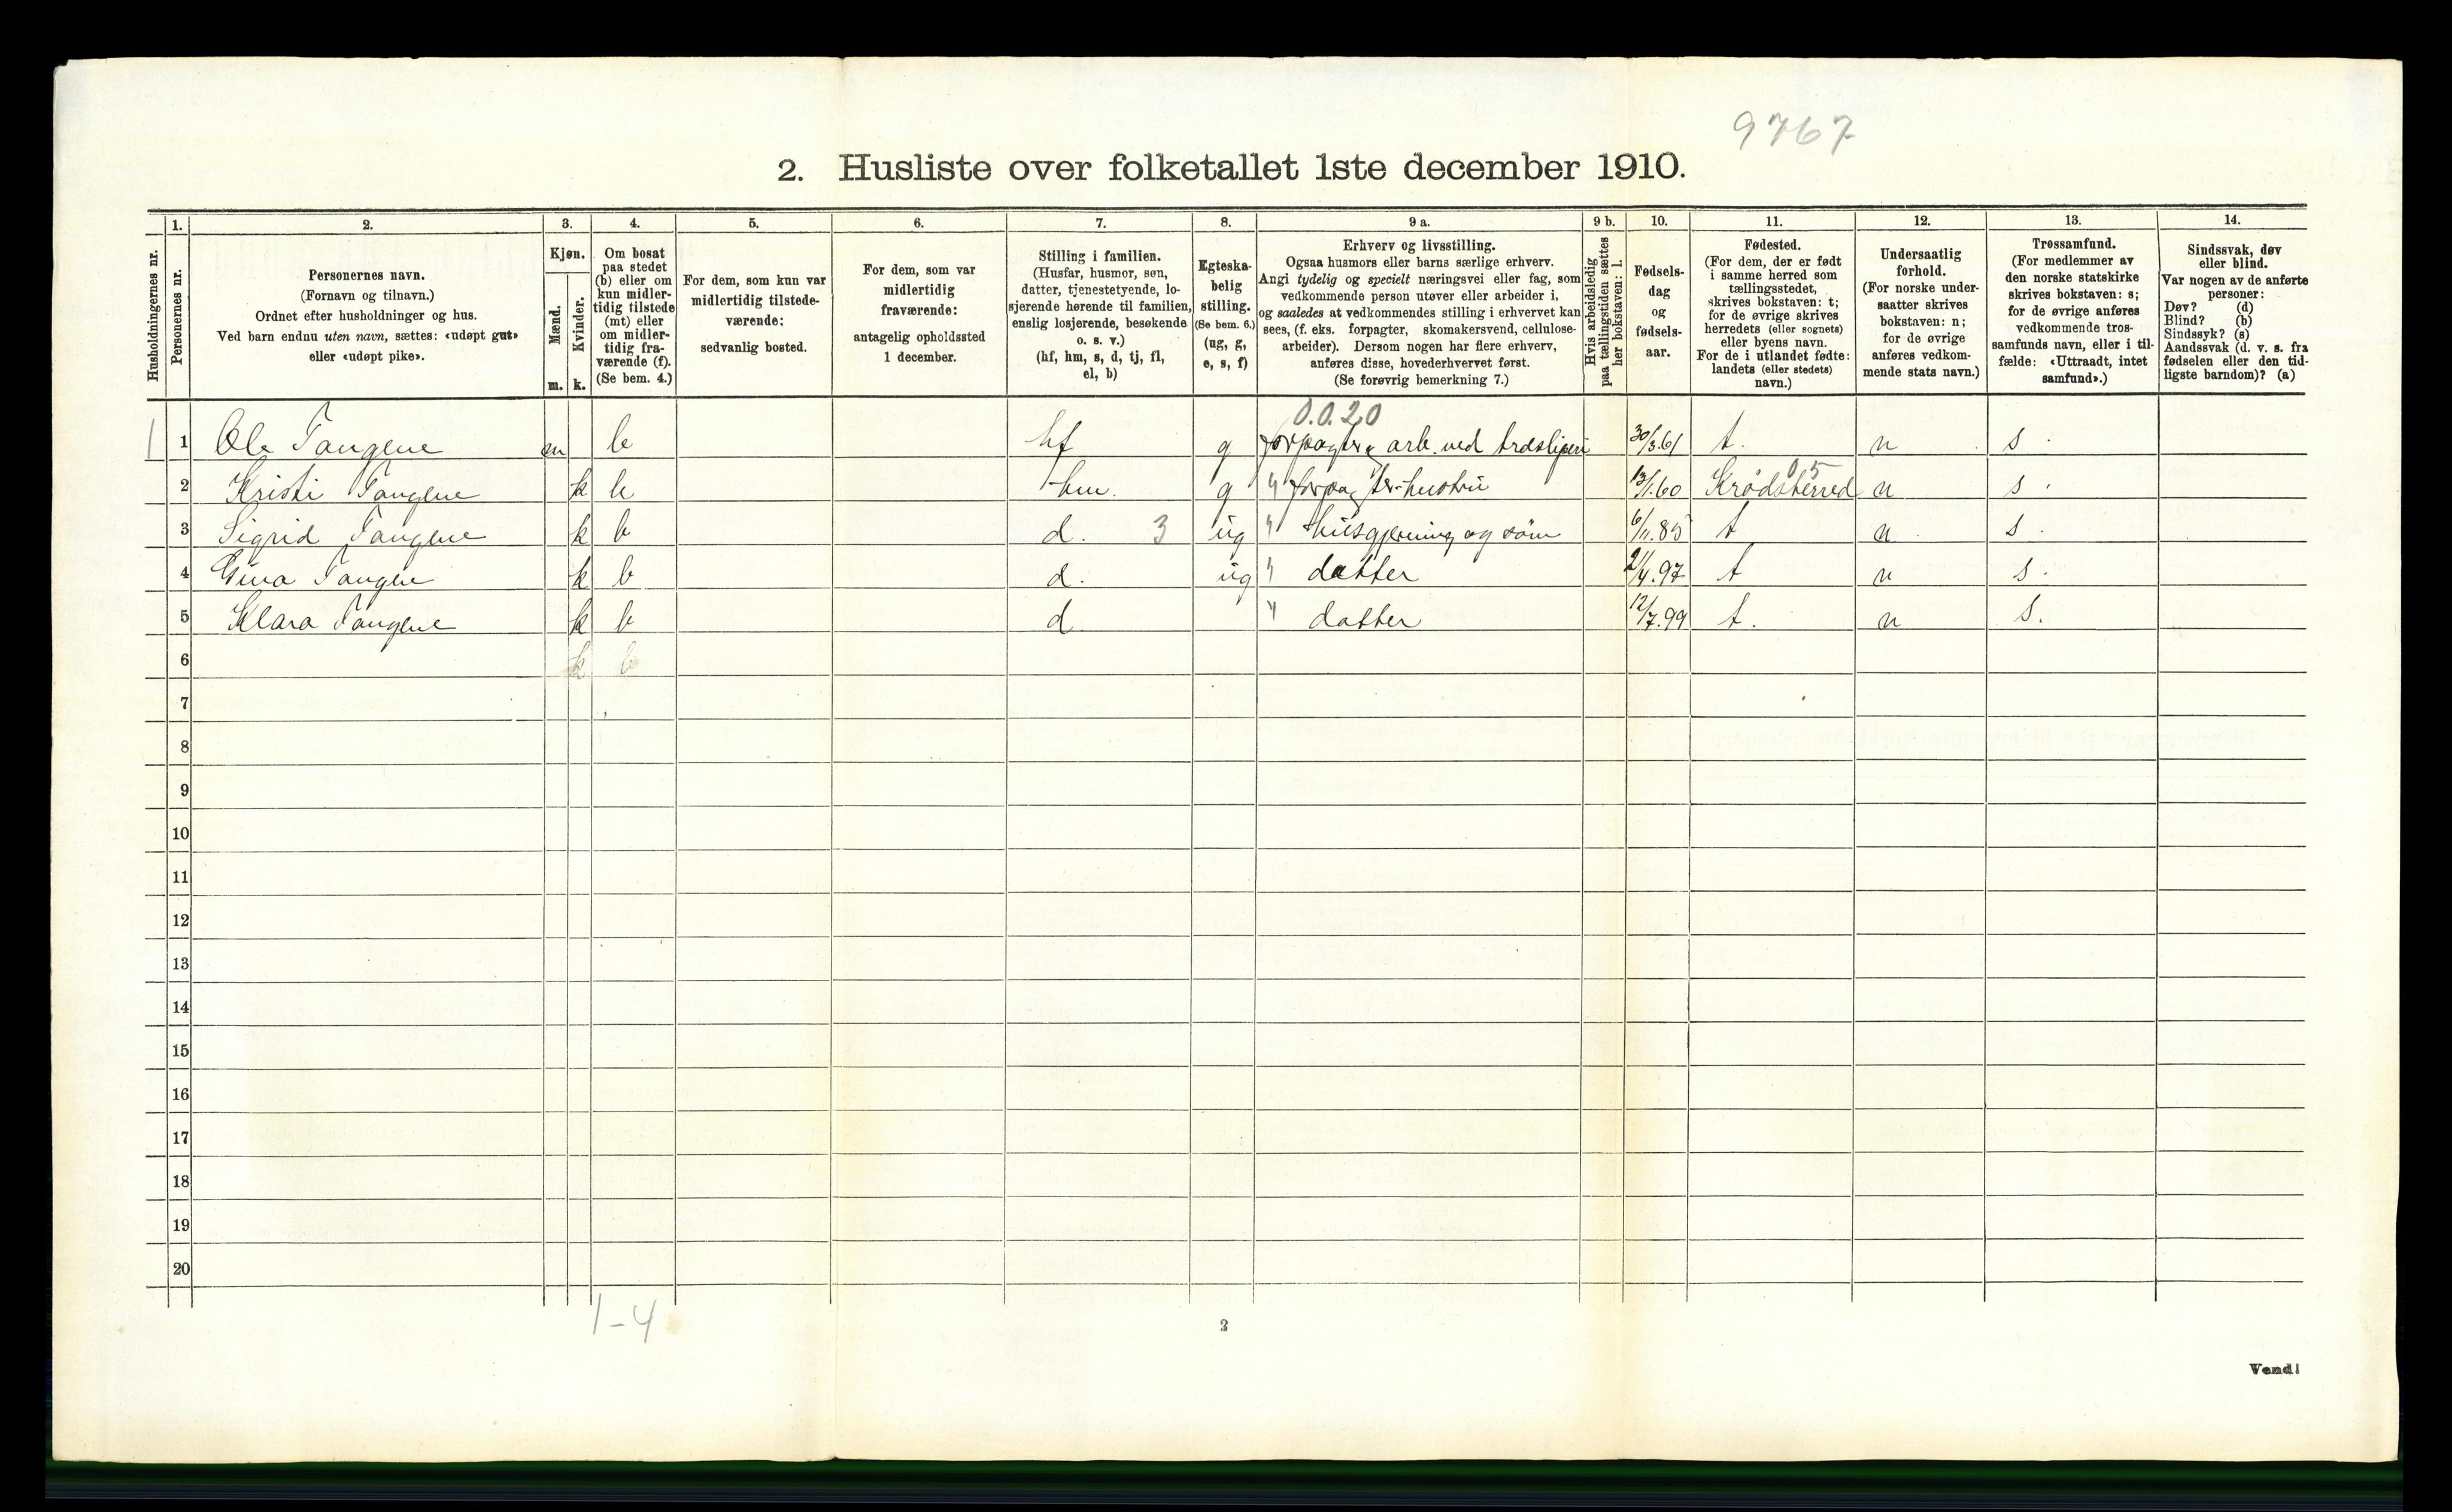 9767
2. Husliste over folketallet 1ste december 1910.
Husholdningernes nr.
1. Personernes nr.
2. Personernes navn.
(Fornavn og tilnavn.)
Ordnet efter husholdninger og hus.
Ved barn endnu uten navn, sættes: «udøpt gut»
eller «udøpt pike».
3. Kjøn.
Mænd. m.
Kvinder. k.
4. Om bosat
paa stedet
(b) eller om
kun midler-
tidig tilstede
(mt) eller
om midler-
tidig fra-
værende (f).
(Se bem. 4.)
5. For dem, som kun var
midlertidig tilstede-
værende:
sedvanlig bosted.
6. For dem, som var
midlertidig
fraværende:
antagelig opholdssted
1 december.
7. Stilling i familien.
(Husfar, husmor, søn,
datter, tjenestetyende, lo-
sjerende hørende til familien,
enslig losjerende, besøkende
o. s. v.)
(hf, hm, s, d, tj, fl,
el, b)
8. Egteska-
belig
stilling.
(Se bem. 6.)
(ug, g,
e, s, f)
9 a. Erhverv og livsstilling.
Ogsaa husmors eller barns særlige erhverv.
Angi tydelig og specielt næringsvei eller fag, som
vedkommende person utøver eller arbeider i,
og saaledes at vedkommendes stilling i erhvervet kan
sees, (f. eks. forpagter, skomakersvend, cellulose-
arbeider). Dersom nogen har flere erhverv,
anføres disse, hovederhvervet først.
(Se forøvrig bemerkning 7.)
9 b. Hvis arbeidsledig
paa tællingstiden sættes
her bokstaven: l.
10. Fødsels-
dag
og
fødsels-
aar.
11. Fødested.
(For dem, der er født
i samme herred som
tællingsstedet,
skrives bokstaven: t;
for de øvrige skrives
herredets (eller sognets)
eller byens navn.
For de i utlandet fødte:
landets (eller stedets)
navn.)
12. Undersaatlig
forhold.
(For norske under-
saatter skrives
bokstaven: n;
for de øvrige
anføres vedkom-
mende stats navn.)
13. Trossamfund.
(For medlemmer av
den norske statskirke
skrives bokstaven: s;
for de øvrige anføres
vedkommende tros-
samfunds navn, eller i til-
fælde: «Uttraadt, intet
samfund».)
14. Sindssvak, døv
eller blind.
Var nogen av de anførte
personer:
Døv? (d)
Blind? (b)
Sindssyk? (s)
Aandssvak (d. v. s. fra
fødselen eller den tid-
ligste barndom)? (a)
0.0.20
1 1 Ole Tangene m b hf g forpagter, arb. ved træsliperi 30/3.61 t. n s.
05
2 Kristi Tangene k b hm. g " forpagter-hustru 13/1.60 Krødsherred n s.
3 Sigrid Tangene k b d. 3 ug " husgjerning og søm 6/11.85 t n s.
4 Gina Tangen k b d. ug " datter 2/4.97 t n s.
5 Klara Tangene k b d " datter 12/7.99 t. n s.
6 k b
7
8
9
10
11
12
13
14
15
16
17
18
19
20
1-4
2
Vend!